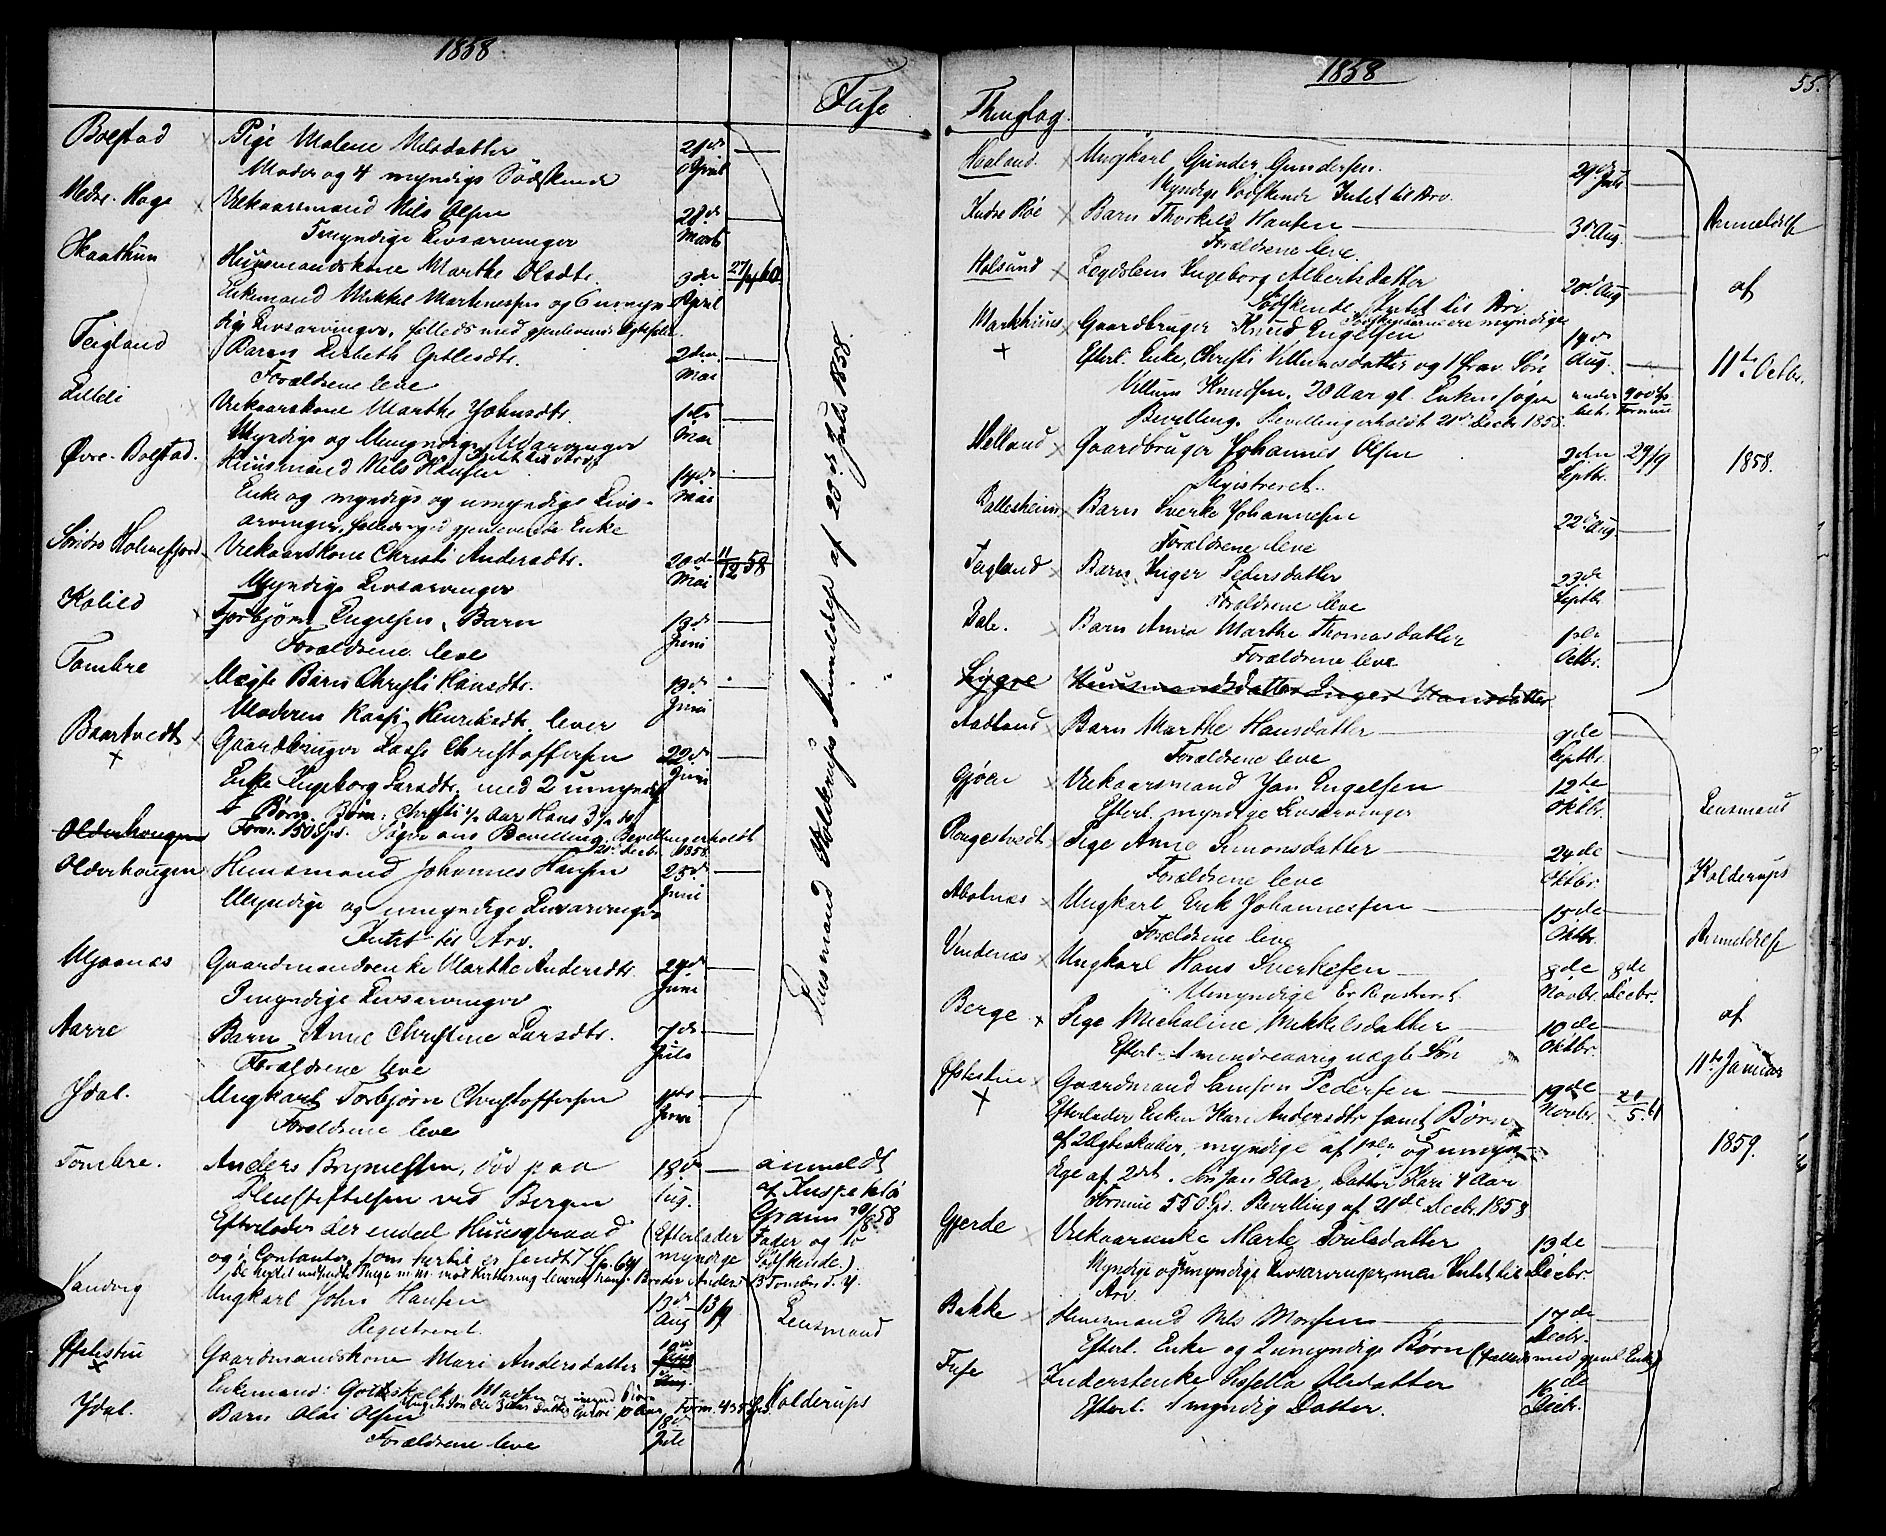 1858
Fuse
Bolstad Pige Malene Nilsdatter 21de April
Moder og 4 myndige Sødskende
Nedre-Hage Vilkaarsmand Nils Olsen 28de Marts
3 myndige Livsarvinger
Skaathun Huusmandskone Marthe Olsdtr. 3die April 27/4 60
Enkemand Mikkel Mortensen og 6 umyn-
dige Livsarvinger, fælleds med gjenlevende Ægtefælle
Teigland Barn Lisbeth Gitlesdtr. 2den Mai
Forældrene leve
Eilidi Vilkaarskone Marthe Johnsdtr. 1ste Mai
Myndige og Umyndige Udarvinger
Øvre-Bolstad. Huusmand Nils Hansen 14de Mai
Enke og myndige og umyndige Livs-
arvinger, fælleds med gjenlevende Enke
Søndre Holmefjord Vilkaarskone Christi Andersdtr. 20de Mai 11/12 58
Myndige Livsarvinger
Kolild Torbjørn Engelsen, Barn 13de Juni
Forældrene leve
Tombre Uægte Barn Christi Hansdtr. 13de Juni
Moderen Kari Henriksdtr. lever
Baartvedt Gaardbruger Lasse Christoffersen 22de Juni
Enke Ingeborg Larsdtr. med 2 umyndi-
ge Børn. Børn: Christi 1/2 Aar Hans 3 1/2 do
Olderhougen Form. 150 Spd. Bevilling. Bevillingerholdt 21de Decbr. 1858.
Olderhougen Huusmand Johannes Hansen 25de Juni
Myndige og umyndige Livsarvinger
Intet til Arv.
Ujaanæs Gaardmandsenke Marthe Andersdtr. 24de Juni
3 myndige Livsarvinger
Aarre Barn Anne Christine Larsdtr. 7de Juli
Forældrene leve
Ydal. Ungkarl Torbjørn Christoffersen 11te Juni
Forældrene leve
Tombre. Anders Brynielsen, død paa 18de Aug. anmeldt
Pleiestiftelsen ved Bergen af Inspektør
Gram 20/8 58
Efterlader der endeel Huusgeraad (Efterlader Fader og 10
og i Contanter, som hertil er sendt 7 Sp. 64 myndige Sødskende.)
Vandvig Ungkarl John Hansen 13de Aug 13/9 Lensmand
Registreret.
Østestiu Gaardmandskone Mari Andersdatter 19de Aug.
Enkemand: Gotskalk
Kolderups
Ydal. Barn Olai Olsen 18de Juli
Forældrene leve
Lensmand Kolderups Anmeldelse af 20de Juli 1858.
1858
55.
Thinglag.
Haaland. Ungkarl Grinder Gundersen. 29de Juli
Myndige Sødskende Intet til Arv.
Indre Røe Barn Thorkild Hansen 3die Aug.
Forældrene leve
Holsund Legdslem Ingeborg Albertsdatter 20de Aug
Sødskende Intet til Arv.
Sødskenderne ere myndige
Markhuus Gaardbruger Knud Engelsen 14de Aug.
Efterl. Enke, Christi Villumsdatter og 1 frav. Søn
Villum Knudsen, 20 Aar gl. Enken søger under 900 Spd.
Bevilling. Bevillingerholdt 21de Decbr 1858. Formue
Helland Gaardbruger Johannes Olsen 2den Septbr. 29/9
Registreret.
Ballesheim Barn Sverke Johannesen 22de Aug.
Forældrene leve
Teigland Barn Inger Pedersdatter 23de Septbr
Forældrene leve
Dale. Barn Anna Marthe Thomasdatter 1ste Octbr.
Forældrene leve
Lygre Huusmandsdatter Inger Hansdatter
Aadland Barn Marthe Hansdatter 9de Septbr.
Forældrene leve
Gjøen Vilkaarsmand Jan Engelsen 12te Oktbr.
Efterl. myndige Livsarvinger
Rengestvedt Pige Anne Simonsdatter 24de Oktbr
Forældrene leve
Abolnæs Ungkarl Erik Johannessen 15de Oktbr.
Forældrene leve
Vindenæs Ungkarl Hans Sverkesen 8de Novbr. 8de Decbr.
Umyndige Er Registreret.
Berge Pige Michaline Mikkelsdatter 10de Oktbr.
Efterl. 1 mindreaarig uægte Søn
Østestiu Gaardmand Samson Pedersen 19de Novbr. 21/5 61
Efterlader Enken Kari Andersdtr samt Børn
af 2 Ægteskaber, myndige af 1ste og umyn-
dige af 2det. Søn Jan 8 Aar, Datter Kari 4 Aar
Formue 550 Spd. Bevilling af 21de Decbr. 1858
Gjerde Vilkaarsenke Marte Poulsdatter 13de Decbr.
Myndige og umyndige Livsarvinger, men Intet til
Arv
Bakke Huusmand Nils Monsen 17de Decbr.
Efterl. Enke og 2 umyndige Børn (fælleds med gjenl. Enke)
Fuse Inderstenke Sissella Olsdatter 16de Decbr.
Efterl. 1 myndig Datter.
Anmeldelse
af
11te Octbr.
1858.
Lensmand
Kolderups
Anmeldelse
af
11te Januar
1859.